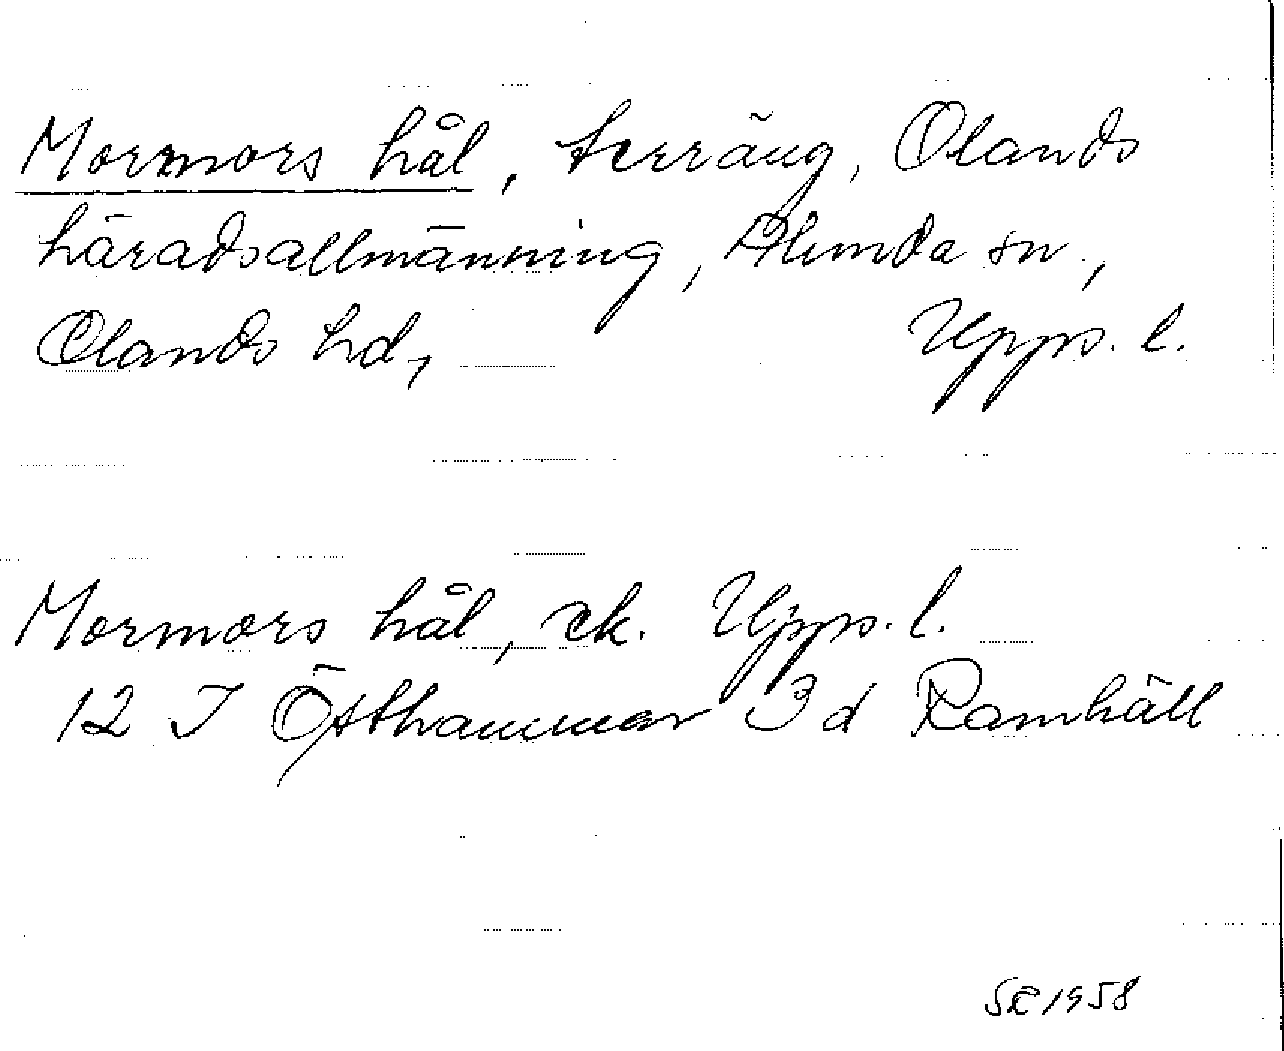 Mormors hål, terräng, Olands
häradsallmänning, Alunda sn.,
Olands hd, Upps. l.
Mormors hål, ek. Upps. l.
12 I Östhammar 3 d Ramhäll
SE 1958